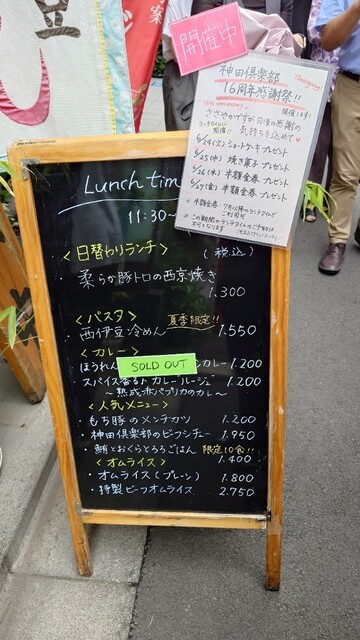 豆
案
開催中
神田倶楽部
16周年感謝祭!!
ささやかですが日頃の感謝の
気持ちを込めて♥
ランチタイムに
開催!!
6/24(火) ショートケーキプレゼント
6/25(水) 焼き菓子プレゼント
6/26(木) 半額金券プレゼント
6/27(金) 半額金券プレゼント
※半額金券 7月以降のランチタイムで
ご利用可
※この期間のランチタイムのご予約は
不可となります
Lunch tim
11:30~
<日替わりランチ>
(税込)
・柔らか豚トロの西京焼き
1.300
<パスタ>
・西伊豆冷めん 夏季限定!! 1.550
<カレー>
ほうれん
SOLD OUT
カレー 1.200
・スパイス香るトカレールージュ 1.200
~熟成赤パプリカのカレ~
<人気メニュー>
・もち豚のメンチカツ 1.200
・神田倶楽部のビーフシチュー 1.950
・鮪とおくらとろろごはん 限定10食!!
1.400
<オムライス>
・オムライス(プレーン) 1.800
特製ビーフオムライス 2.750